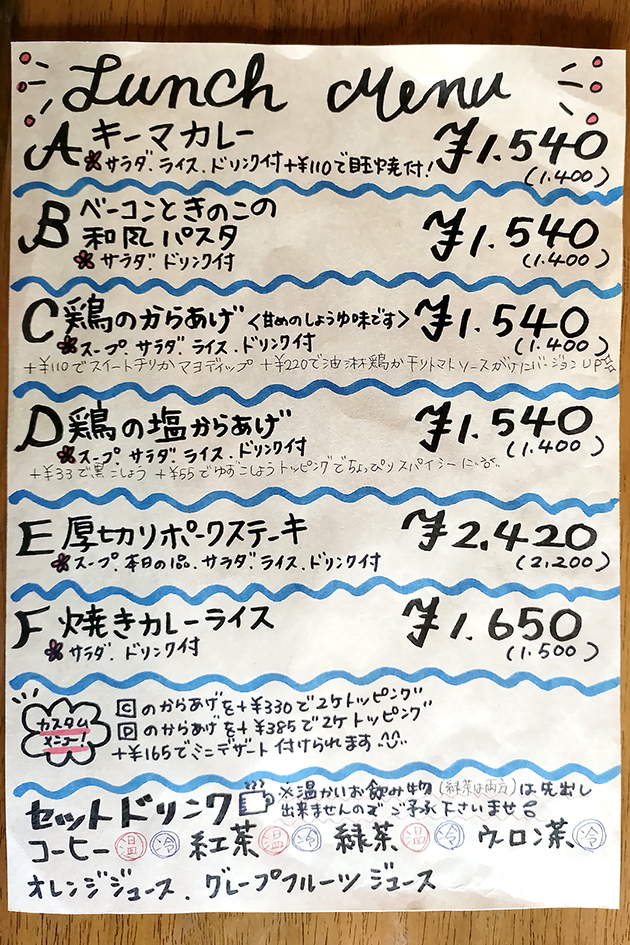 Lunch Menu
A キーマカレー ¥1.540
サラダ.ライス.ドリンク付+¥110で目玉焼付! (1.400)
B ベーコンときのこの
和風パスタ ¥1.540
サラダ.ドリンク付 (1.400)
C 鶏のからあげ〈甘めのしょうゆ味です〉 ¥1.540
スープ.サラダ.ライス.ドリンク付 (1.400)
+¥110でスイートチリかマヨディップ +¥220で油淋鶏かチリトマトソースがけにバージョンUP
D 鶏の塩からあげ ¥1.540
スープ.サラダ.ライス.ドリンク付 (1.400)
+¥33で黒こしょう +¥55でゆずこしょうトッピングでちょっぴりスパイシーに
E 厚切りポークステーキ ¥2.420
スープ.本日の1品.サラダ.ライス.ドリンク付 (2.200)
F 焼きカレーライス ¥1.650
サラダ.ドリンク付 (1.500)
カスタム
メニュー!
Cのからあげを+¥330で2ケトッピング
Dのからあげを+¥385で2ケトッピング
+¥165でミニデザート付けられます
セットドリンク ※温かいお飲み物(緑茶は両方)は先出し
出来ませんのでご了承下さいませ
コーヒー温冷 紅茶温冷 緑茶温冷 ウーロン茶冷
オレンジジュース.グレープフルーツジュース